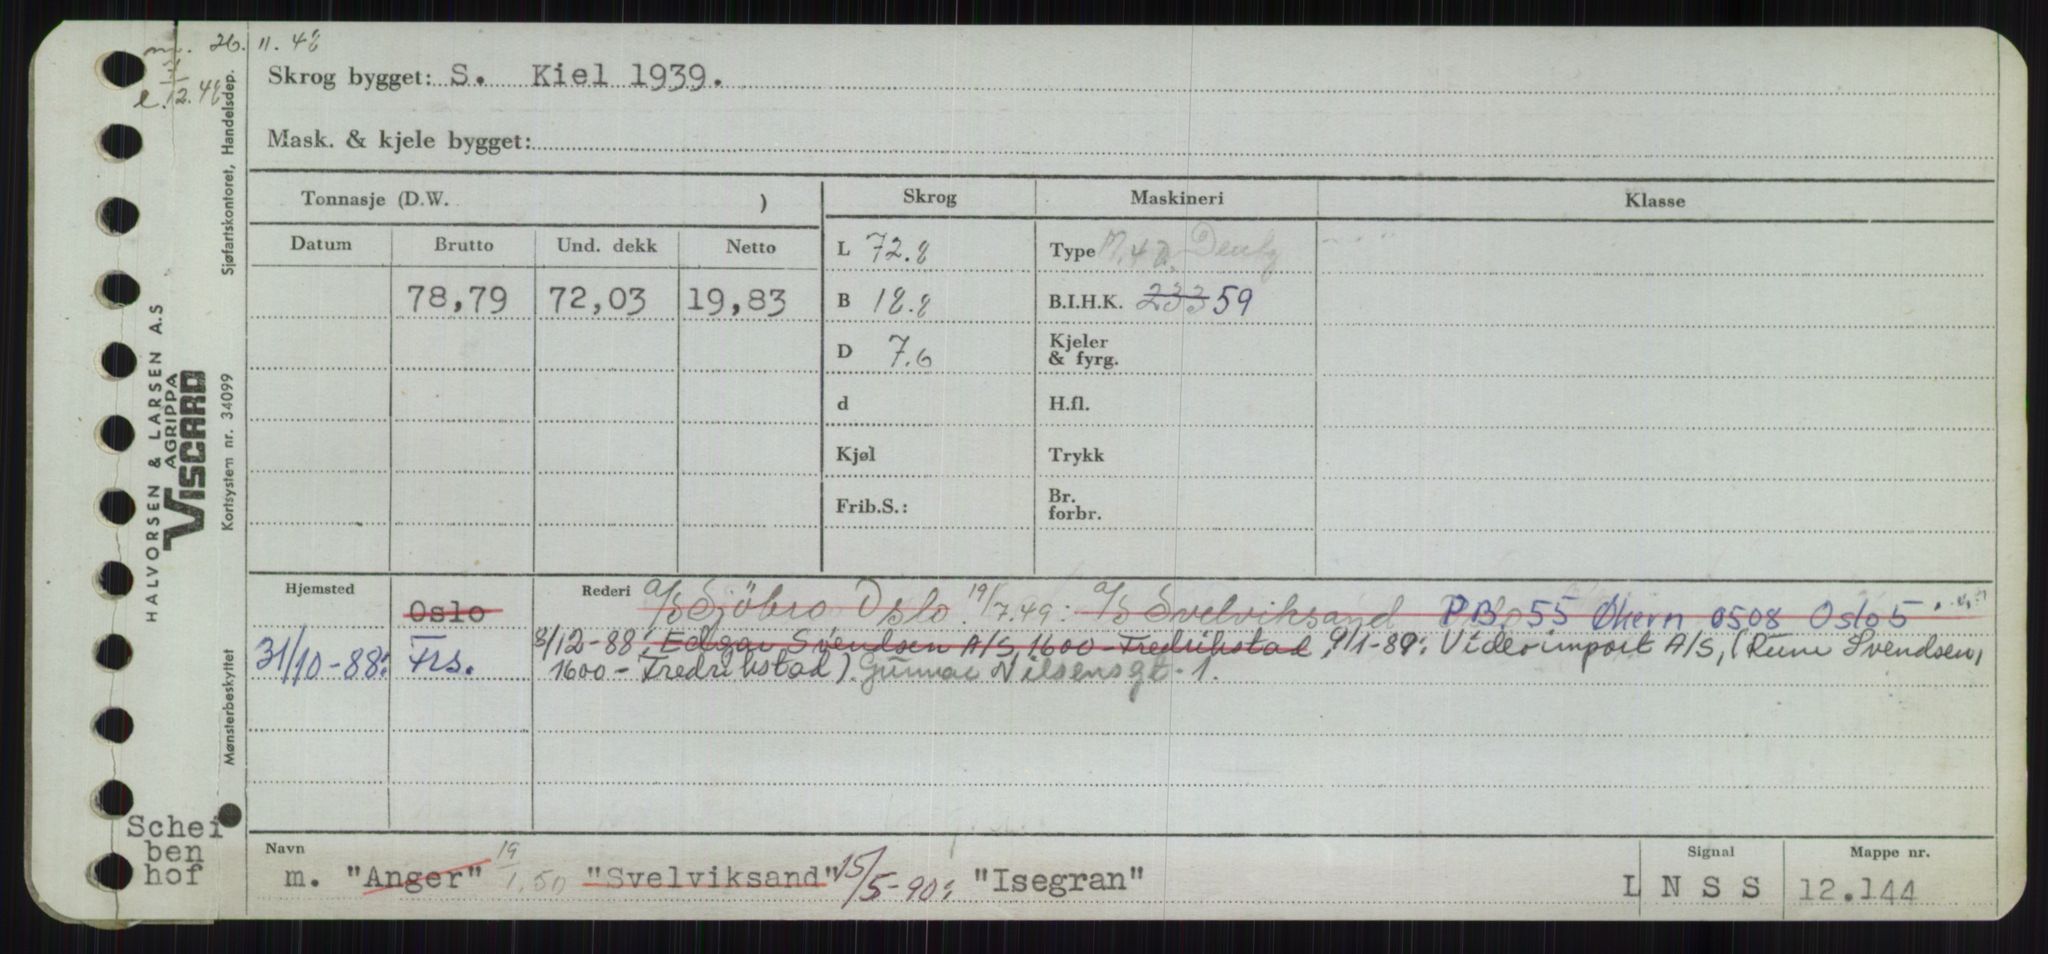 26. 11. 48
Skrog bygget: S. Kiel 1939.
12.48
Mask. & kjele bygget:
Tonnasje (D.W. ) Skrog Maskineri Klasse
Datum Brutto Und. dekk Netto L 72.8 Type
78,79 72,03 19,83 B 18.8 B.I.H.K. 233 59
D 7.6 Kjeler & fyrg.
d H.fl.
Kjøl Trykk
Frib.S.: Br. forbr.
Hjemsted Rederi
Oslo A/S Sjöbro Oslo. 19/7.49: A/S Svelviksand P.B. 55 Økern 0508 Oslo 5
31/10-88: Frs. 8/12-88: Edgar Svendsen A/S, 1600-Fredrikstad, 9/1-89: Viderimport A/S, (Rune Svendsen,
1600-Fredrikstad). Gunnar Nilsensgt. 1.
Navn Signal Mappe nr.
m. "Anger" 19/1.50 "Svelviksand" 15/5-90: "Isegran" L N S S 12.144
Sjøfartskontoret, Handelsdep.
HALVORSEN & LARSEN A.S
AGRIPPA
VISCARD
Kortsystem nr. 34099
Mønsterbeskyttet
Schei
ben
hof